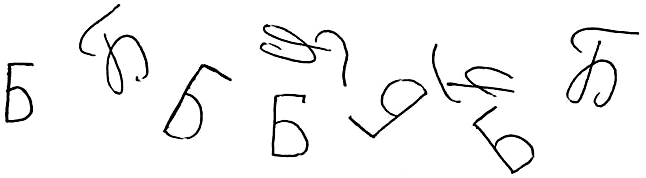 Б Б Б Б Б Б Б Б Б